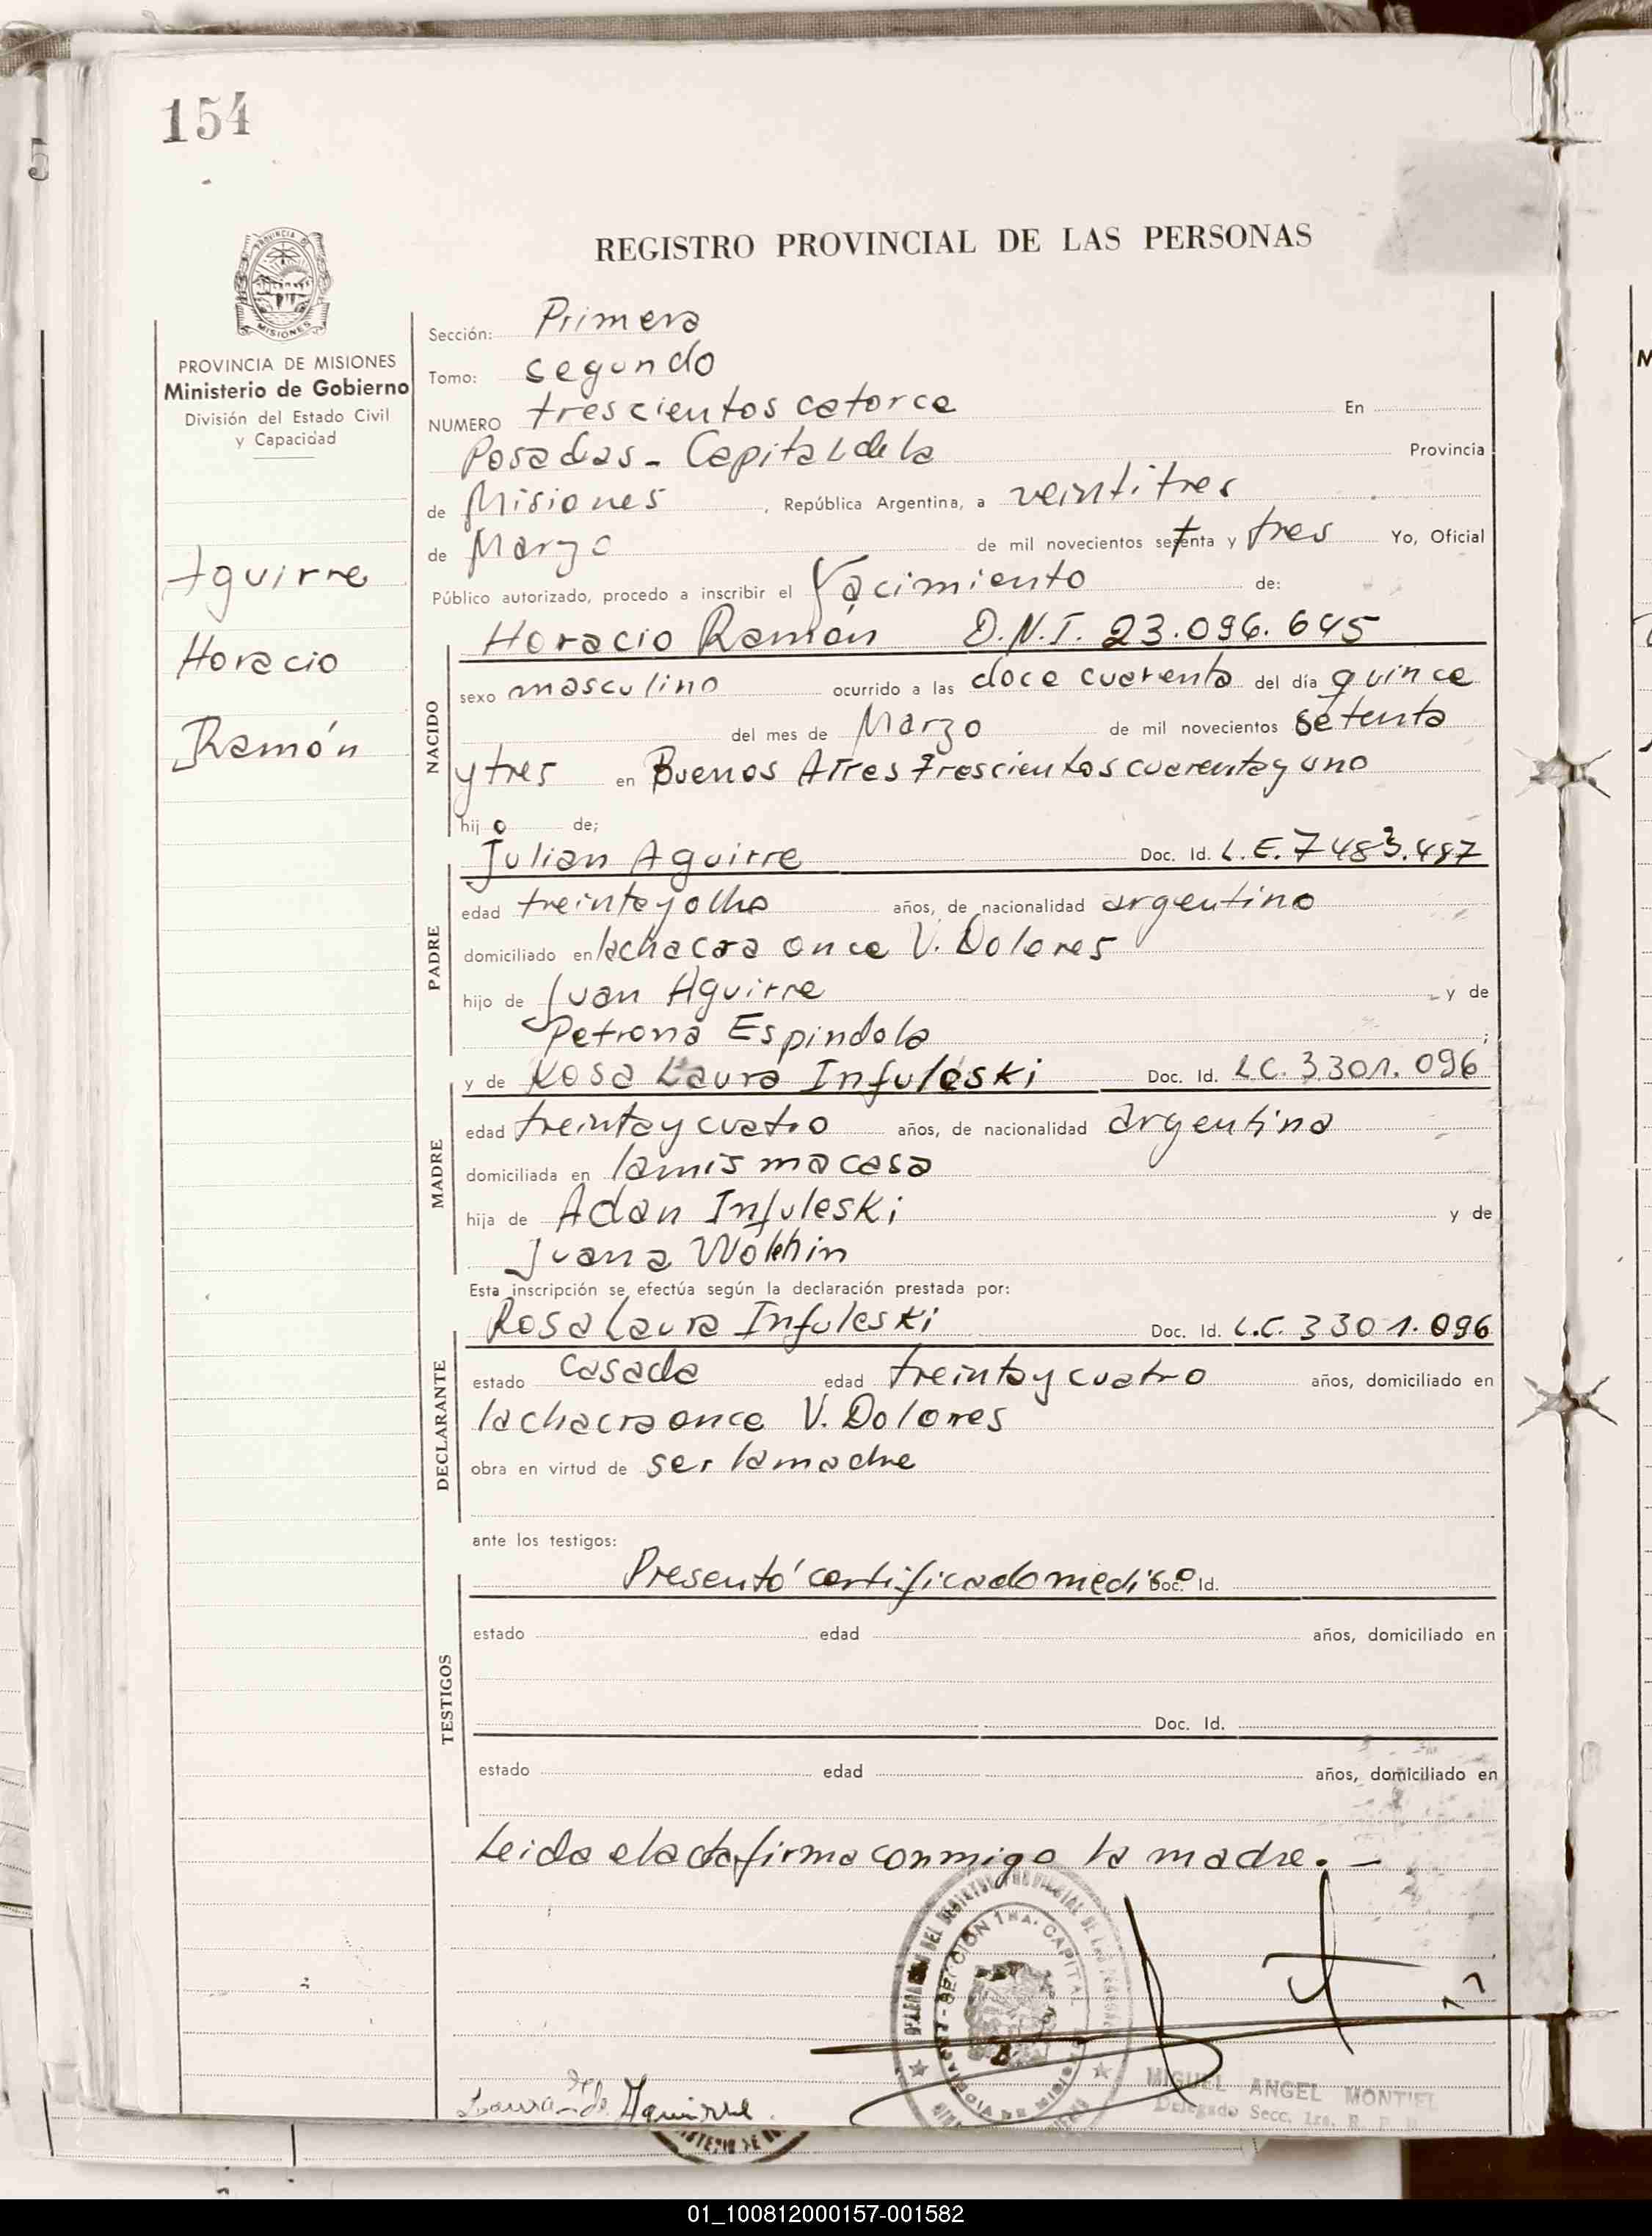 154
REGISTRO PROVINCIAL DE LAS PERSONAS
PROVINCIA DE MISIONES
Ministerio de Gobierno
División del Estado Civil
y Capacidad
Aguirre
Horacio
Ramón
Sección: Primera
Tomo: segundo
NUMERO trescientos catorce En
Posadas - Capital de la Provincia
de Misiones, República Argentina, a veintitres
de Marzo de mil novecientos setenta y tres Yo, Oficial
Público autorizado, procedo a inscribir el Nacimiento de:
NACIDO
Horacio Ramón D.N.I. 23.096.645
sexo masculino ocurrido a las doce cuarenta del día quince
del mes de Marzo de mil novecientos setenta
y tres en Buenos Aires trescientos cuarenta y uno
hijo de;
PADRE
Julian Aguirre Doc. Id. L.E. 7483.487
edad treinta y ocho años, de nacionalidad argentino
domiciliado en la chacra once V. Dolores
hijo de Juan Aguirre y de
Petrona Espindola ;
MADRE
y de Rosa Laura Infuleski Doc. Id. L.C. 3.301.096
edad treinta y cuatro años, de nacionalidad argentina
domiciliada en la misma casa
hija de Adan Infuleski y de
Juana
Esta inscripción se efectúa según la declaración prestada por:
DECLARANTE
Rosa Laura Infuleski Doc. Id. L.C. 3301.096
estado casada edad treinta y cuatro años, domiciliado en
la chacra once V. Dolores
obra en virtud de ser la madre
ante los testigos:
TESTIGOS
Presentó certificado medico Doc. Id.
estado edad años, domiciliado en
Doc. Id.
estado edad años, domiciliado en
Leida el acta firma conmigo la madre. -
SECCION 1RA. CAPITAL
Laura de Aguirre
MIGUEL ANGEL MONTIEL
Delegado Secc. 1ra. R. P.
01_100812000157-001582